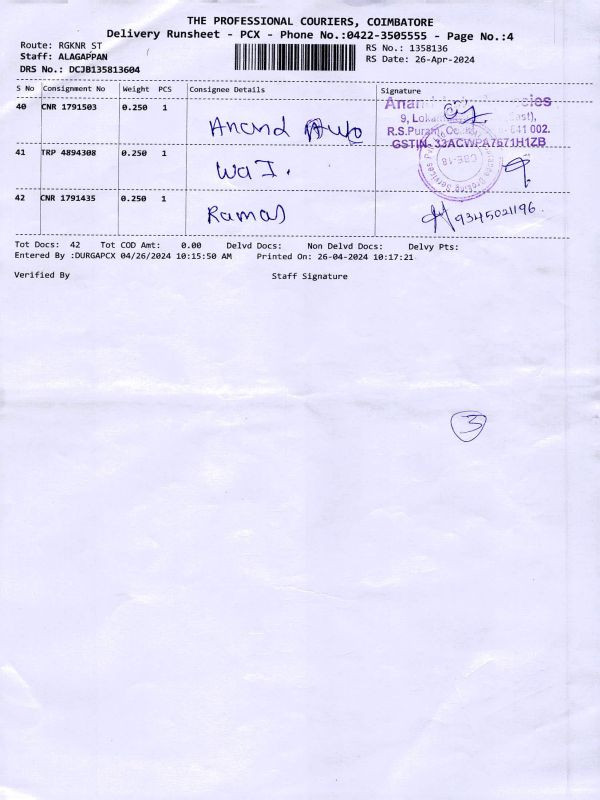 THE PROFESSIONAL COURIERS, COIMBATORE
Delivery Runsheet - PCX - Phone No.:0422-3505555 - Page No.:4
Route: RGKNR ST
RS No.: 1358136
Staff: ALAGAPPAN
RS Date: 26-Apr-2024
DRS No.: DCJB135813604
S No Consignment No Weight PCS Consignee Details Signature
40 CNR 1791503 0.250 1 Anand Auto
9,
R.S.Puram, 641 002.
GSTIN. 33ACWPA7671H1ZB
CBE-18
41 TRP 4894308 0.250 1
42 CNR 1791435 0.250 1 9345021196
Tot Docs: 42 Tot COD Amt: 0.00 Delvd Docs: Non Delvd Docs: Delvy Pts:
Entered By :DURGAPCX 04/26/2024 10:15:50 AM Printed On: 26-04-2024 10:17:21
Verified By Staff Signature
3